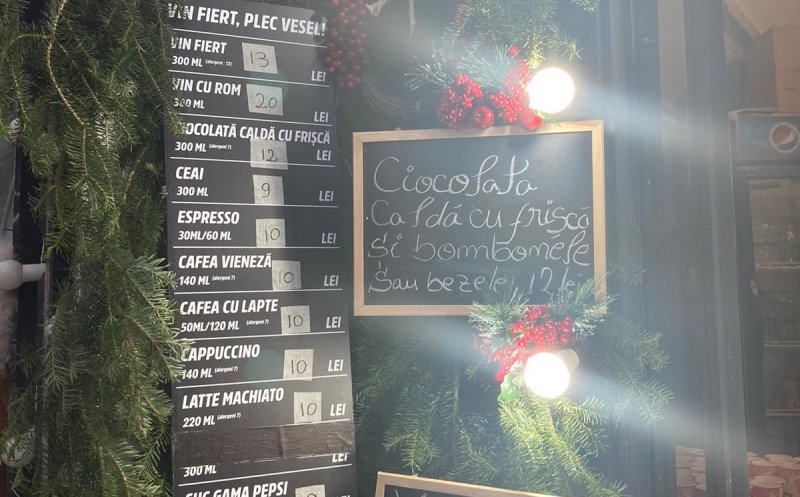 VIN FIERT, PLEC VESEL!
VIN FIERT
300 ML (alergeni : 12) 13 LEI
VIN CU ROM
300 ML 20 LEI
CIOCOLATĂ CALDĂ CU FRIȘCĂ
300 ML (alergeni 7) 12 LEI
CEAI
300 ML 9 LEI
ESPRESSO
30ML/60 ML 10 LEI
CAFEA VIENEZĂ
140 ML (alergeni 7) 10 LEI
CAFEA CU LAPTE
50ML/120 ML (alergeni 7) 10 LEI
CAPPUCCINO
140 ML (alergeni 7) 10 LEI
LATTE MACHIATO
220 ML (alergeni 7) 10 LEI
300 ML LEI
SUC GAMA PEPSI
Ciocolata
Caldă cu frișcă
și bombonele
Sau bezele 12 lei